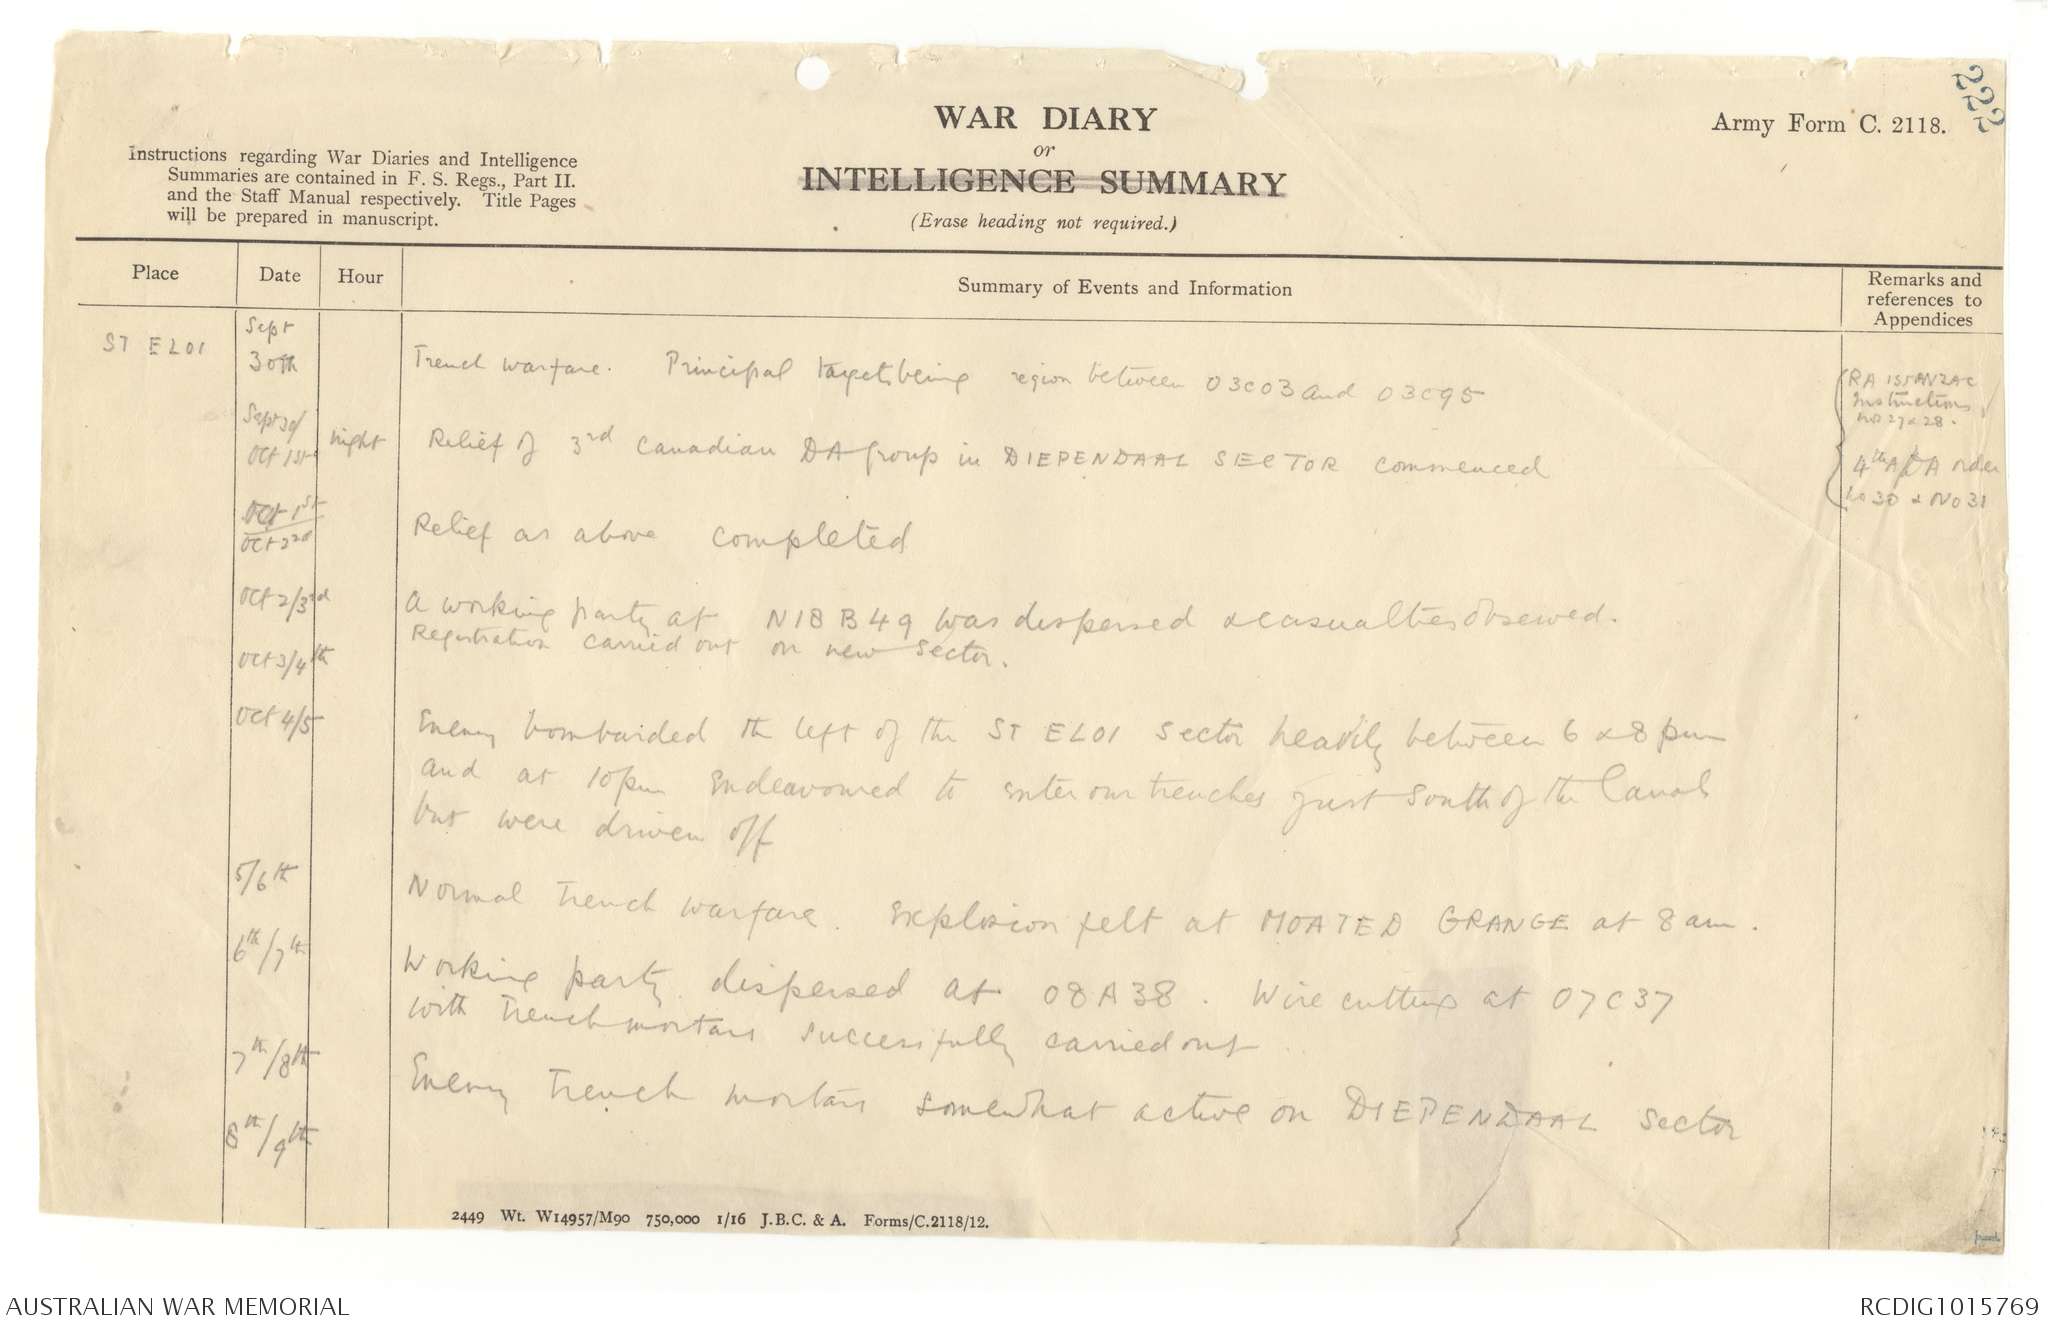 222
WAR DIARY
or
INTELLIGENCE SUMMARY
(Erase heading not required.)
Army Form C. 2118.
Instructions regarding War Diaries and Intelligence
Summaries are contained in F. S. Regs., Part II.
and the Staff Manual respectively. Title Pages
will be prepared in manuscript.
Place Date Hour Summary of Events and Information Remarks and references to Appendices
ST ELOI Sept 30th Trench warfare. Principal targets being region between O3C03 and O3C95
RA 1st ANZAC
Instructions
No 27 & 28.
Sept 30/
Oct 1st night Relief of 3rd Canadian DA Group in DIEPENDAAL SECTOR commenced
4th A order
No 30 & No 31
Oct 1st
Oct 2nd Relief as above completed
Oct 2/3rd A working party at N18B49 was dispersed & casualties observed.
Registration carried out on new sector.
Oct 3/4th
Oct 4/5 Enemy bombarded the left of the ST ELOI Sector heavily between 6 & 8 pm
and at 10 pm endeavoured to enter our trenches just south of the Canal
but were driven off
5/6th Normal trench warfare. Explosion felt at MOATED GRANGE at 8 am.
6th/7th Working party dispersed at O8A38. Wire cutting at O7C37
with trench mortars successfully carried out.
7th/8th Enemy trench mortars somewhat active on DIEPENDAAL Sector
8th/9th
2449 Wt. W14957/M90 750,000 1/16 J.B.C. & A. Forms/C.2118/12.
AUSTRALIAN WAR MEMORIAL
RCDIG1015769